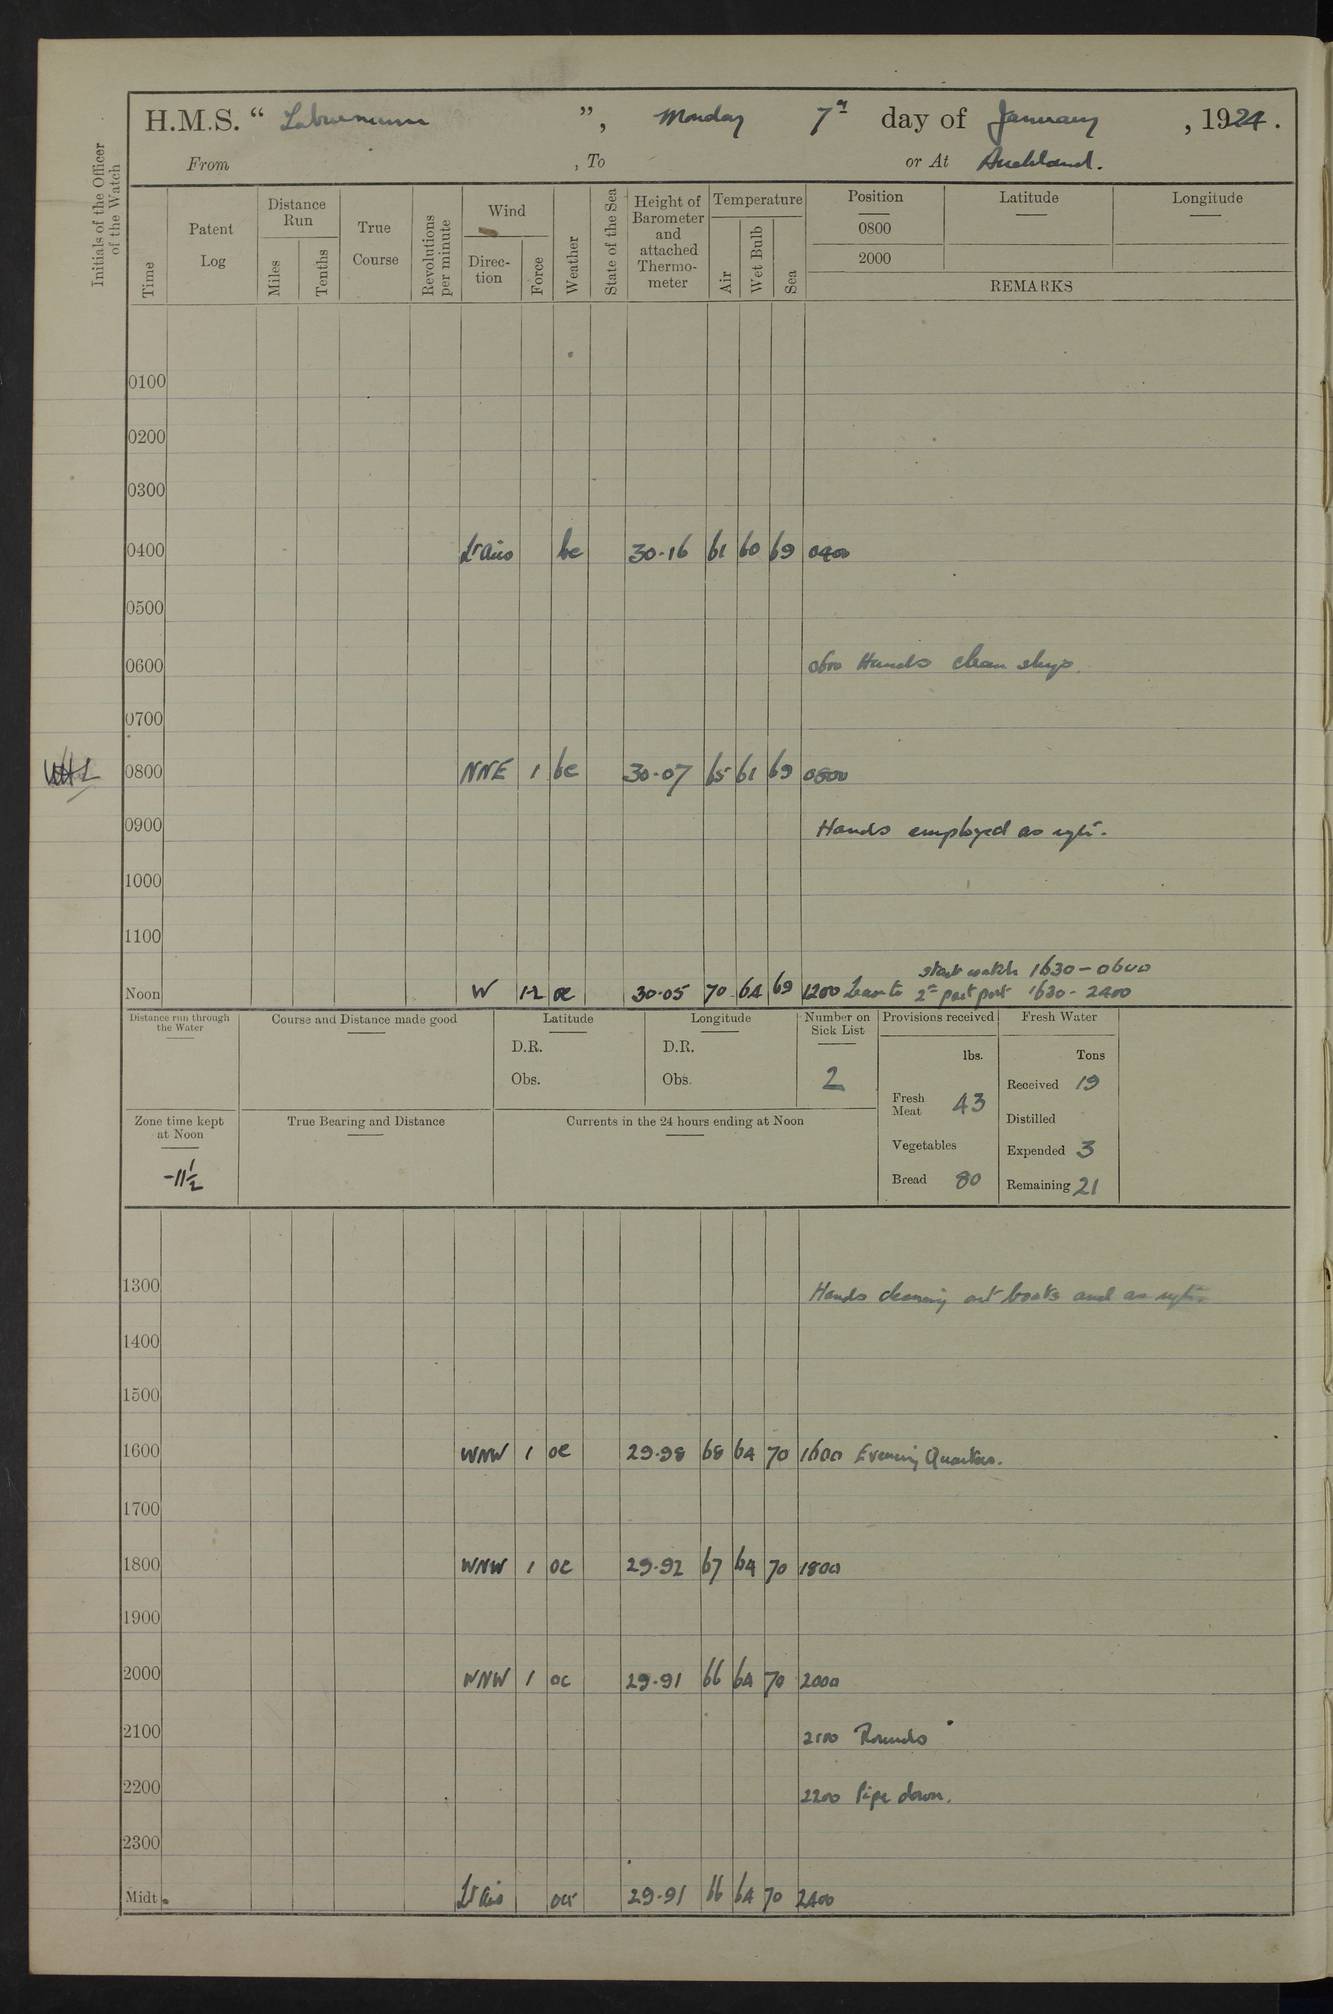 H.M.S. “ Laburnum ”, Monday 7th day of January, 1924.
From , To or At Auckland.
Initials of the Officer of the Watch
Time
Patent Log
Distance Run
Miles
Tenths
True Course
Revolutions per minute
Wind
Direction
Force
Weather
State of the Sea
Height of Barometer and attached Thermometer
Temperature
Air
Wet Bulb
Sea
Position
0800
2000
Latitude
Longitude
REMARKS
0100
0200
0300
0400 Lt airs bc 30.16 61 60 69 0400
0500
0600 0600 Hands clean ship.
0700
0800 NNE 1 bc 30.07 65 61 69 0800
0900 Hands employed as reqte.
1000
1100
start watch 1630 - 0600
Noon W 1-2 oc 30.05 70 64 69 1200 Leave to 2nd part port 1630 - 2400
Distance run through the Water
Course and Distance made good
Latitude
D.R.
Obs.
Longitude
D.R.
Obs.
Number on Sick List
2
Provisions received
lbs.
Fresh Meat 43
Vegetables
Bread 80
Fresh Water
Tons
Received 19
Distilled
Expended 3
Remaining 21
Zone time kept at Noon
-11½
True Bearing and Distance
Currents in the 24 hours ending at Noon
1300 Hands cleaning out boats and as reqte.
1400
1500
1600 WNW 1 oc 29.98 68 64 70 1600 Evening Quarters.
1700
1800 WNW 1 oc 29.92 67 64 70 1800
1900
2000 WNW 1 oc 29.91 66 64 70 2000
2100 2100 Rounds
2200 2200 Pipe down.
2300
Midt. Lt airs 29.91 66 64 70 2400